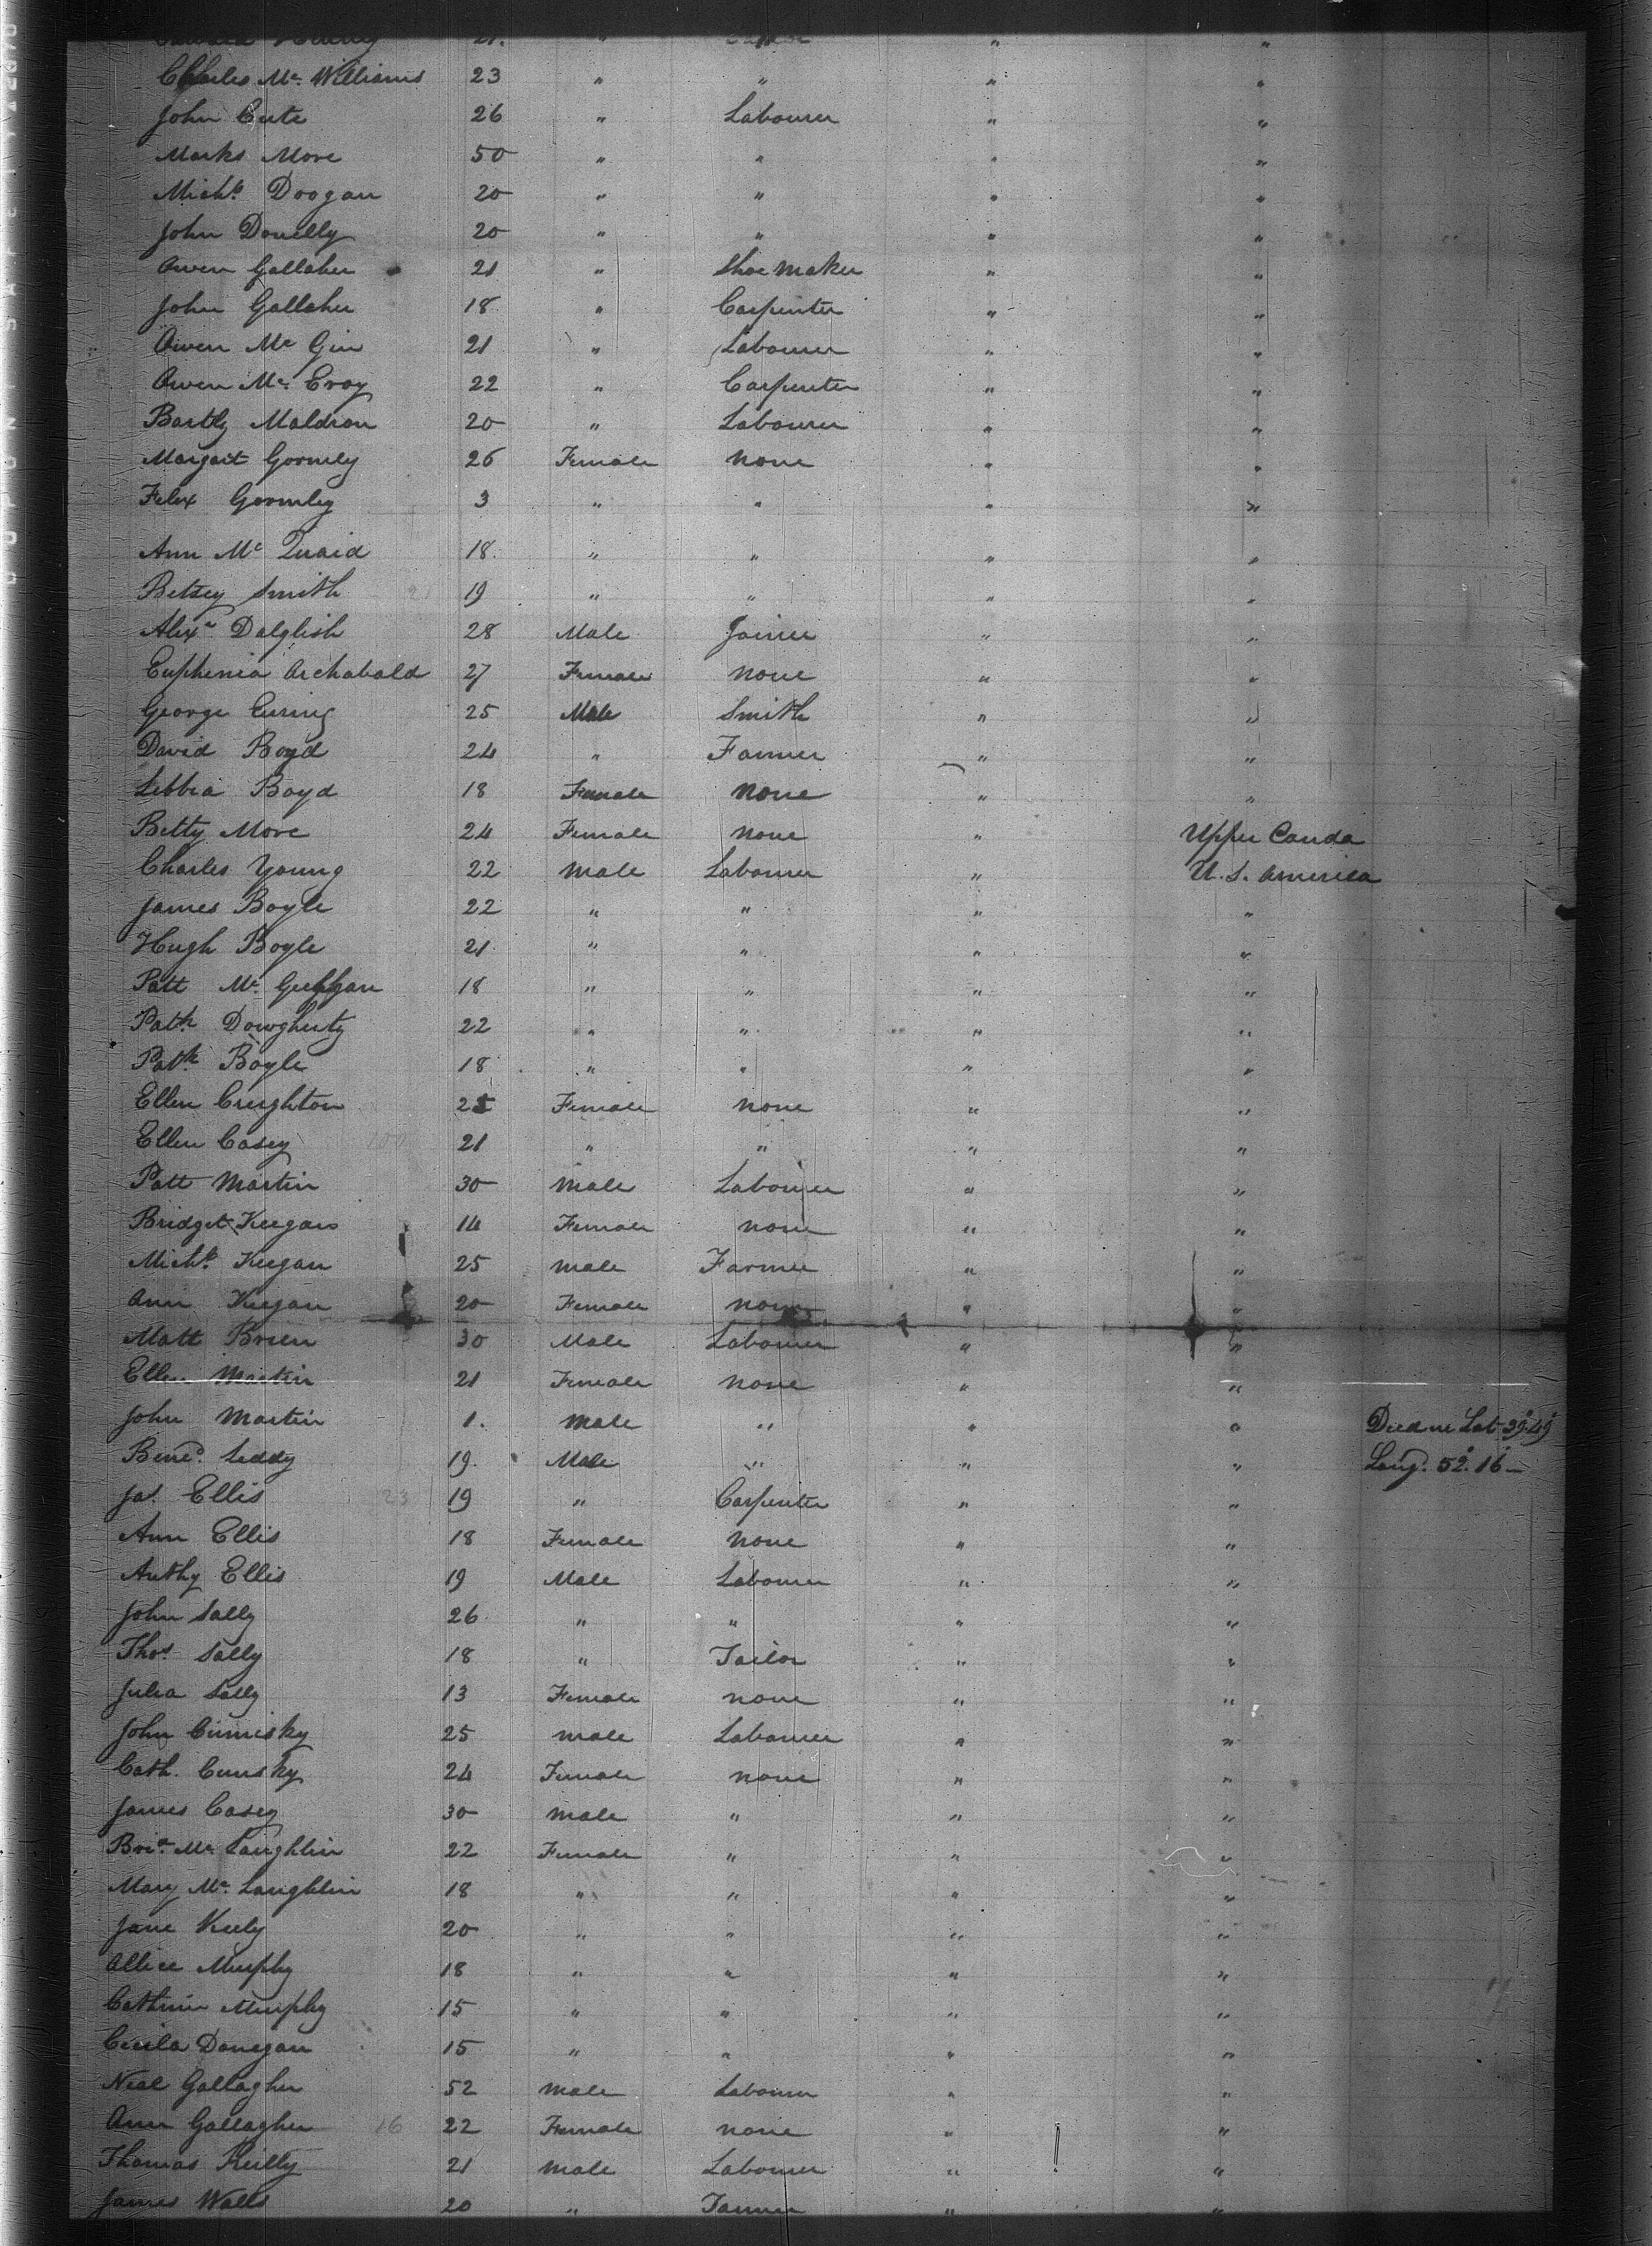 21. "
Charles Mc. Williams 23 " " " "
John Cute 26 " Labourer " "
Marks More 50 " " " "
Michl. Doogan 20 " " " "
John Donelly 20 " " " "
Owen Gallaher 21 " Shoe maker " "
John Gallaher 18 " Carpenter " "
Owen Mc Gin 21 " Labourer " "
Owen Mc. Evoy 22 " Carpenter " "
Bartly Maldron 20 " Labourer " "
Margait Gormly 26 Female none " "
Felex Gormley 3 " " " "
Ann Mc Quaid 18. " " " "
Betsey Smith 19 " " " "
Alexr Dalglish 28 Male Joiner " "
Euphenia Archabald 27 Female none " "
George 25 Male Smith " "
David Boyd 24 " Farmer " "
Lebbia Boyd 18 Female none " "
Betty More 24 Female none " Upper Canda
Charles Young 22 male Labourer " U.S. America
James Boyle 22 " " " "
Hugh Boyle 21 " " " "
Patt Mc. 18 " " " "
Patk Dowgherty 22 " " " "
Patk Boyle 18 " " " "
Ellen Creighton 25 Female none " "
Ellen Casey 21 " " " "
Patt Martin 30 male Labourer " "
Bridget Keegan 14 Female none " "
Michl. Keegan 25 male Farmer " "
Ann Keegan 20 Female none " "
Matt Brien 30 Male Labourer " "
Ellen Martin 21 Female none " "
John Martin 1. male " " " Died in Lat 39°.49'
Bined. Leddy 19. Male " " " Long. 52°.16'
Jas. Ellis 19 " Carpenter " "
Ann Ellis 18 Female none " "
Anthy Ellis 19 Male Labourer " "
John Sally 26 " " " "
Thos. Sally 18 " Tailor " "
Julia Sally 13 Female none " "
John Cumisky 25 male Labourer " "
Cath. Cumsky 24 Female none " "
James Casey 30 male " " "
Mc Laughlin 22 Female " " "
Mary Mc. Laughlin 18 " " " "
Jane Keely 20 " " " "
Allice Murphy 18 " " " "
Cathrin Murphy 15 " " " "
Cicila Donegan 15 " " " "
Neal Gallagher 52 male Labourer " "
Ann Gallagher 22 Female none " "
Thomas Reilly 21 male Labourer " "
James Walls 20 " Farmer " "